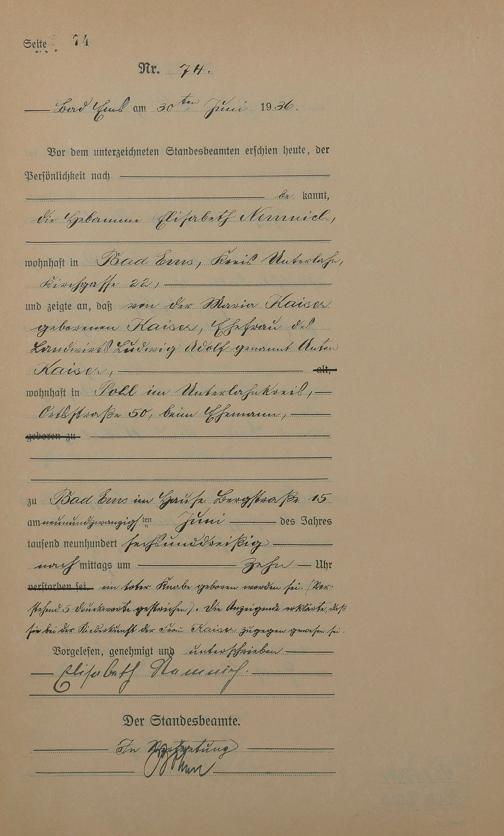 Seite 74
Nr. 74.
Bad Ems am 30ten Juni 1936.
Vor dem unterzeichneten Standesbeamten erschien heute, der
Persönlichkeit nach
be kannt,
die Hebamme Elisabeth
wohnhaft in Bad Ems, Kreis Unterlahn,
Kirchgasse 22,
und zeigte an, daß von der Maria Kaiser
geborenen Kaiser, Ehefrau des
Landwirts Ludwig Adolf genannt Anton
Kaiser, alt,
wohnhaft in Pohl im Unterlahnkreis,
Ortsstraße 50, beim Ehemann,
geboren zu
zu Bad Ems im Hause Bergstraße 15
am neunundzwanzigsten Juni des Jahres
tausend neunhundert sechsunddreißig
nach mittags um zehn Uhr
verstorben sei. ein toter Knabe geboren worden sei. (Vor-
stehend 5 Druckworte gestrichen). Die Anzeigende erklärte, daß
sie bei der Niederkunft der Frau Kaiser zugegen gewesen sei.
Vorgelesen, genehmigt und unterschrieben
Elisabeth
Der Standesbeamte.
In Vertretung